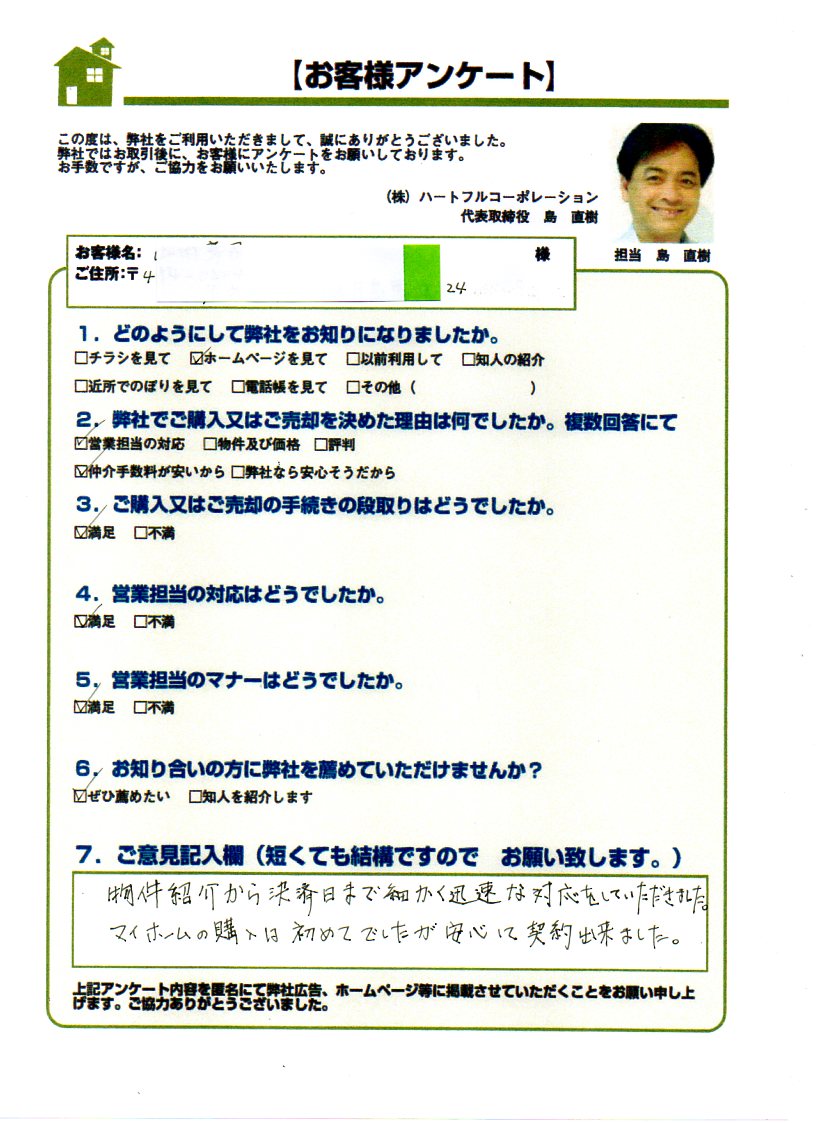 【お客様アンケート】
この度は、弊社をご利用いただきまして、誠にありがとうございました。
弊社ではお取引後に、お客様にアンケートをお願いしております。
お手数ですが、ご協力をお願いいたします。
（株）ハートフルコーポレーション
代表取締役 島 直樹
担当 島 直樹
お客様名： 様
ご住所：〒4 24
1．どのようにして弊社をお知りになりましたか。
□チラシを見て ☑ホームページを見て □以前利用して □知人の紹介
□近所でのぼりを見て □電話帳を見て □その他（ ）
2．弊社でご購入又はご売却を決めた理由は何でしたか。複数回答にて
☑営業担当の対応 □物件及び価格 □評判
☑仲介手数料が安いから □弊社なら安心そうだから
3．ご購入又はご売却の手続きの段取りはどうでしたか。
☑満足 □不満
4．営業担当の対応はどうでしたか。
☑満足 □不満
5．営業担当のマナーはどうでしたか。
☑満足 □不満
6．お知り合いの方に弊社を薦めていただけませんか？
☑ぜひ薦めたい □知人を紹介します
7．ご意見記入欄（短くても結構ですので お願い致します。）
物件紹介から決済日まで細かく迅速な対応をしていただきました。
マイホームの購入は初めてでしたが安心して契約出来ました。
上記アンケート内容を匿名にて弊社広告、ホームページ等に掲載させていただくことをお願い申し上
げます。ご協力ありがとうございました。